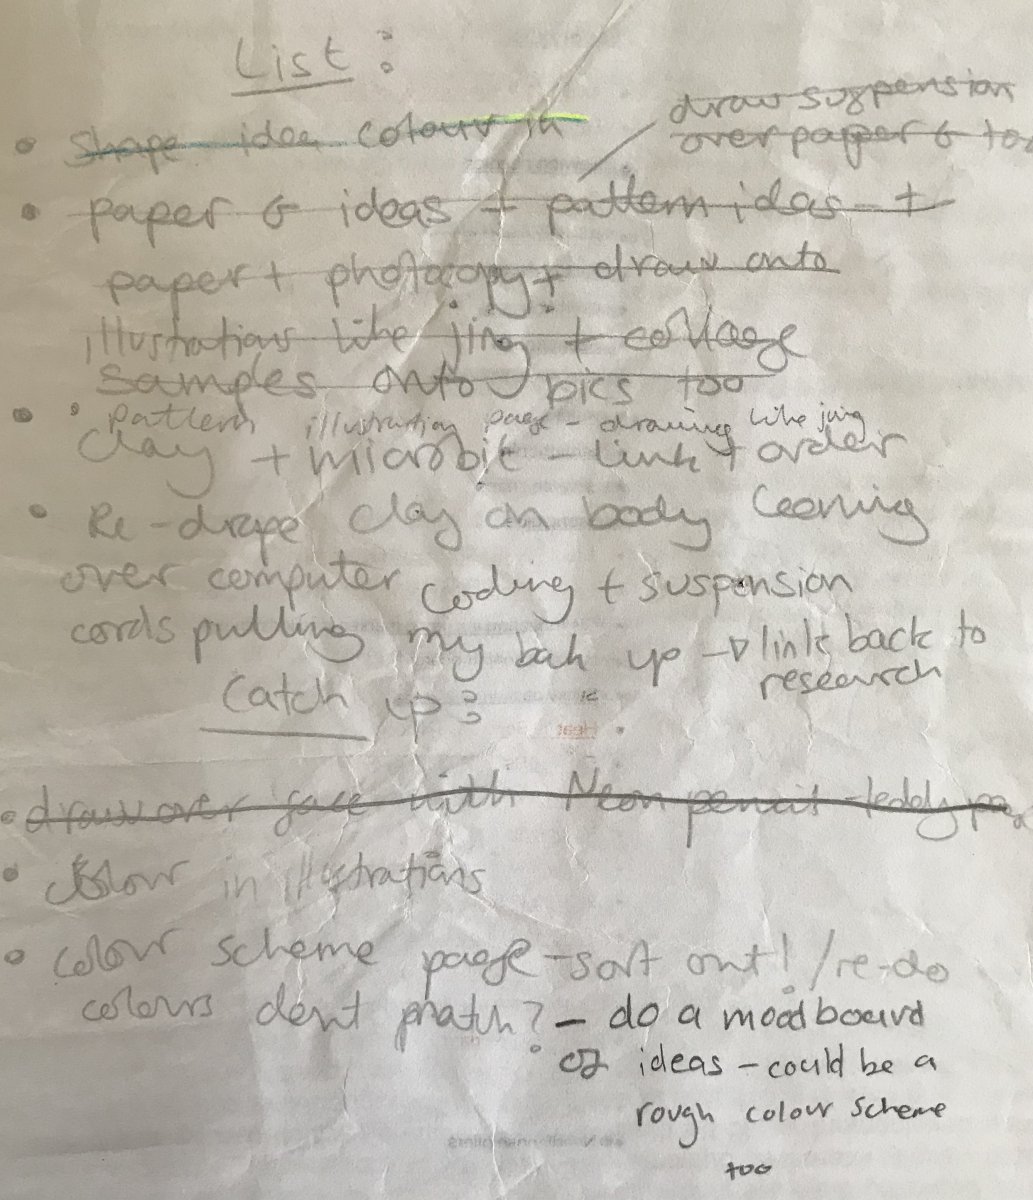 List:
draw suspension
over papper 6 too
• Shape idea colour in
• paper 6 ideas + pattern ideas - +
paper + photocopy + draw onto
illustrations like jing + collage
samples onto pics too
• pattern illustration page - drawing like jing
• clay + microbit - link + order
• Re-drape clay on body leening
over computer coding + suspension
cords pulling my bak up → link back to
research
Catch up:
• draw over face with Neon pencil - teddy page
• colour in illustrations
• colour scheme page - sort out! / re-do
colours dont match? - do a moodboard
of ideas - could be a
rough colour scheme
too